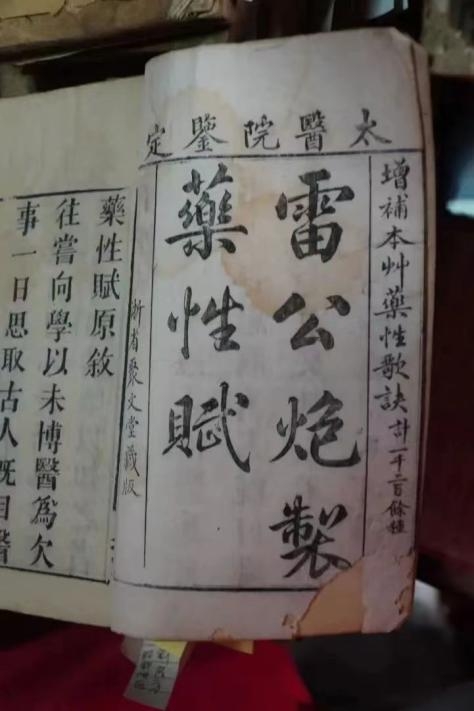 太醫院鑒定
增補本艸藥性歌訣計一千二百餘種
雷公炮製
藥性賦
浙省聚文堂藏版
藥性賦原敘
往嘗向學以未博醫爲欠
事一日思取古人既目醫